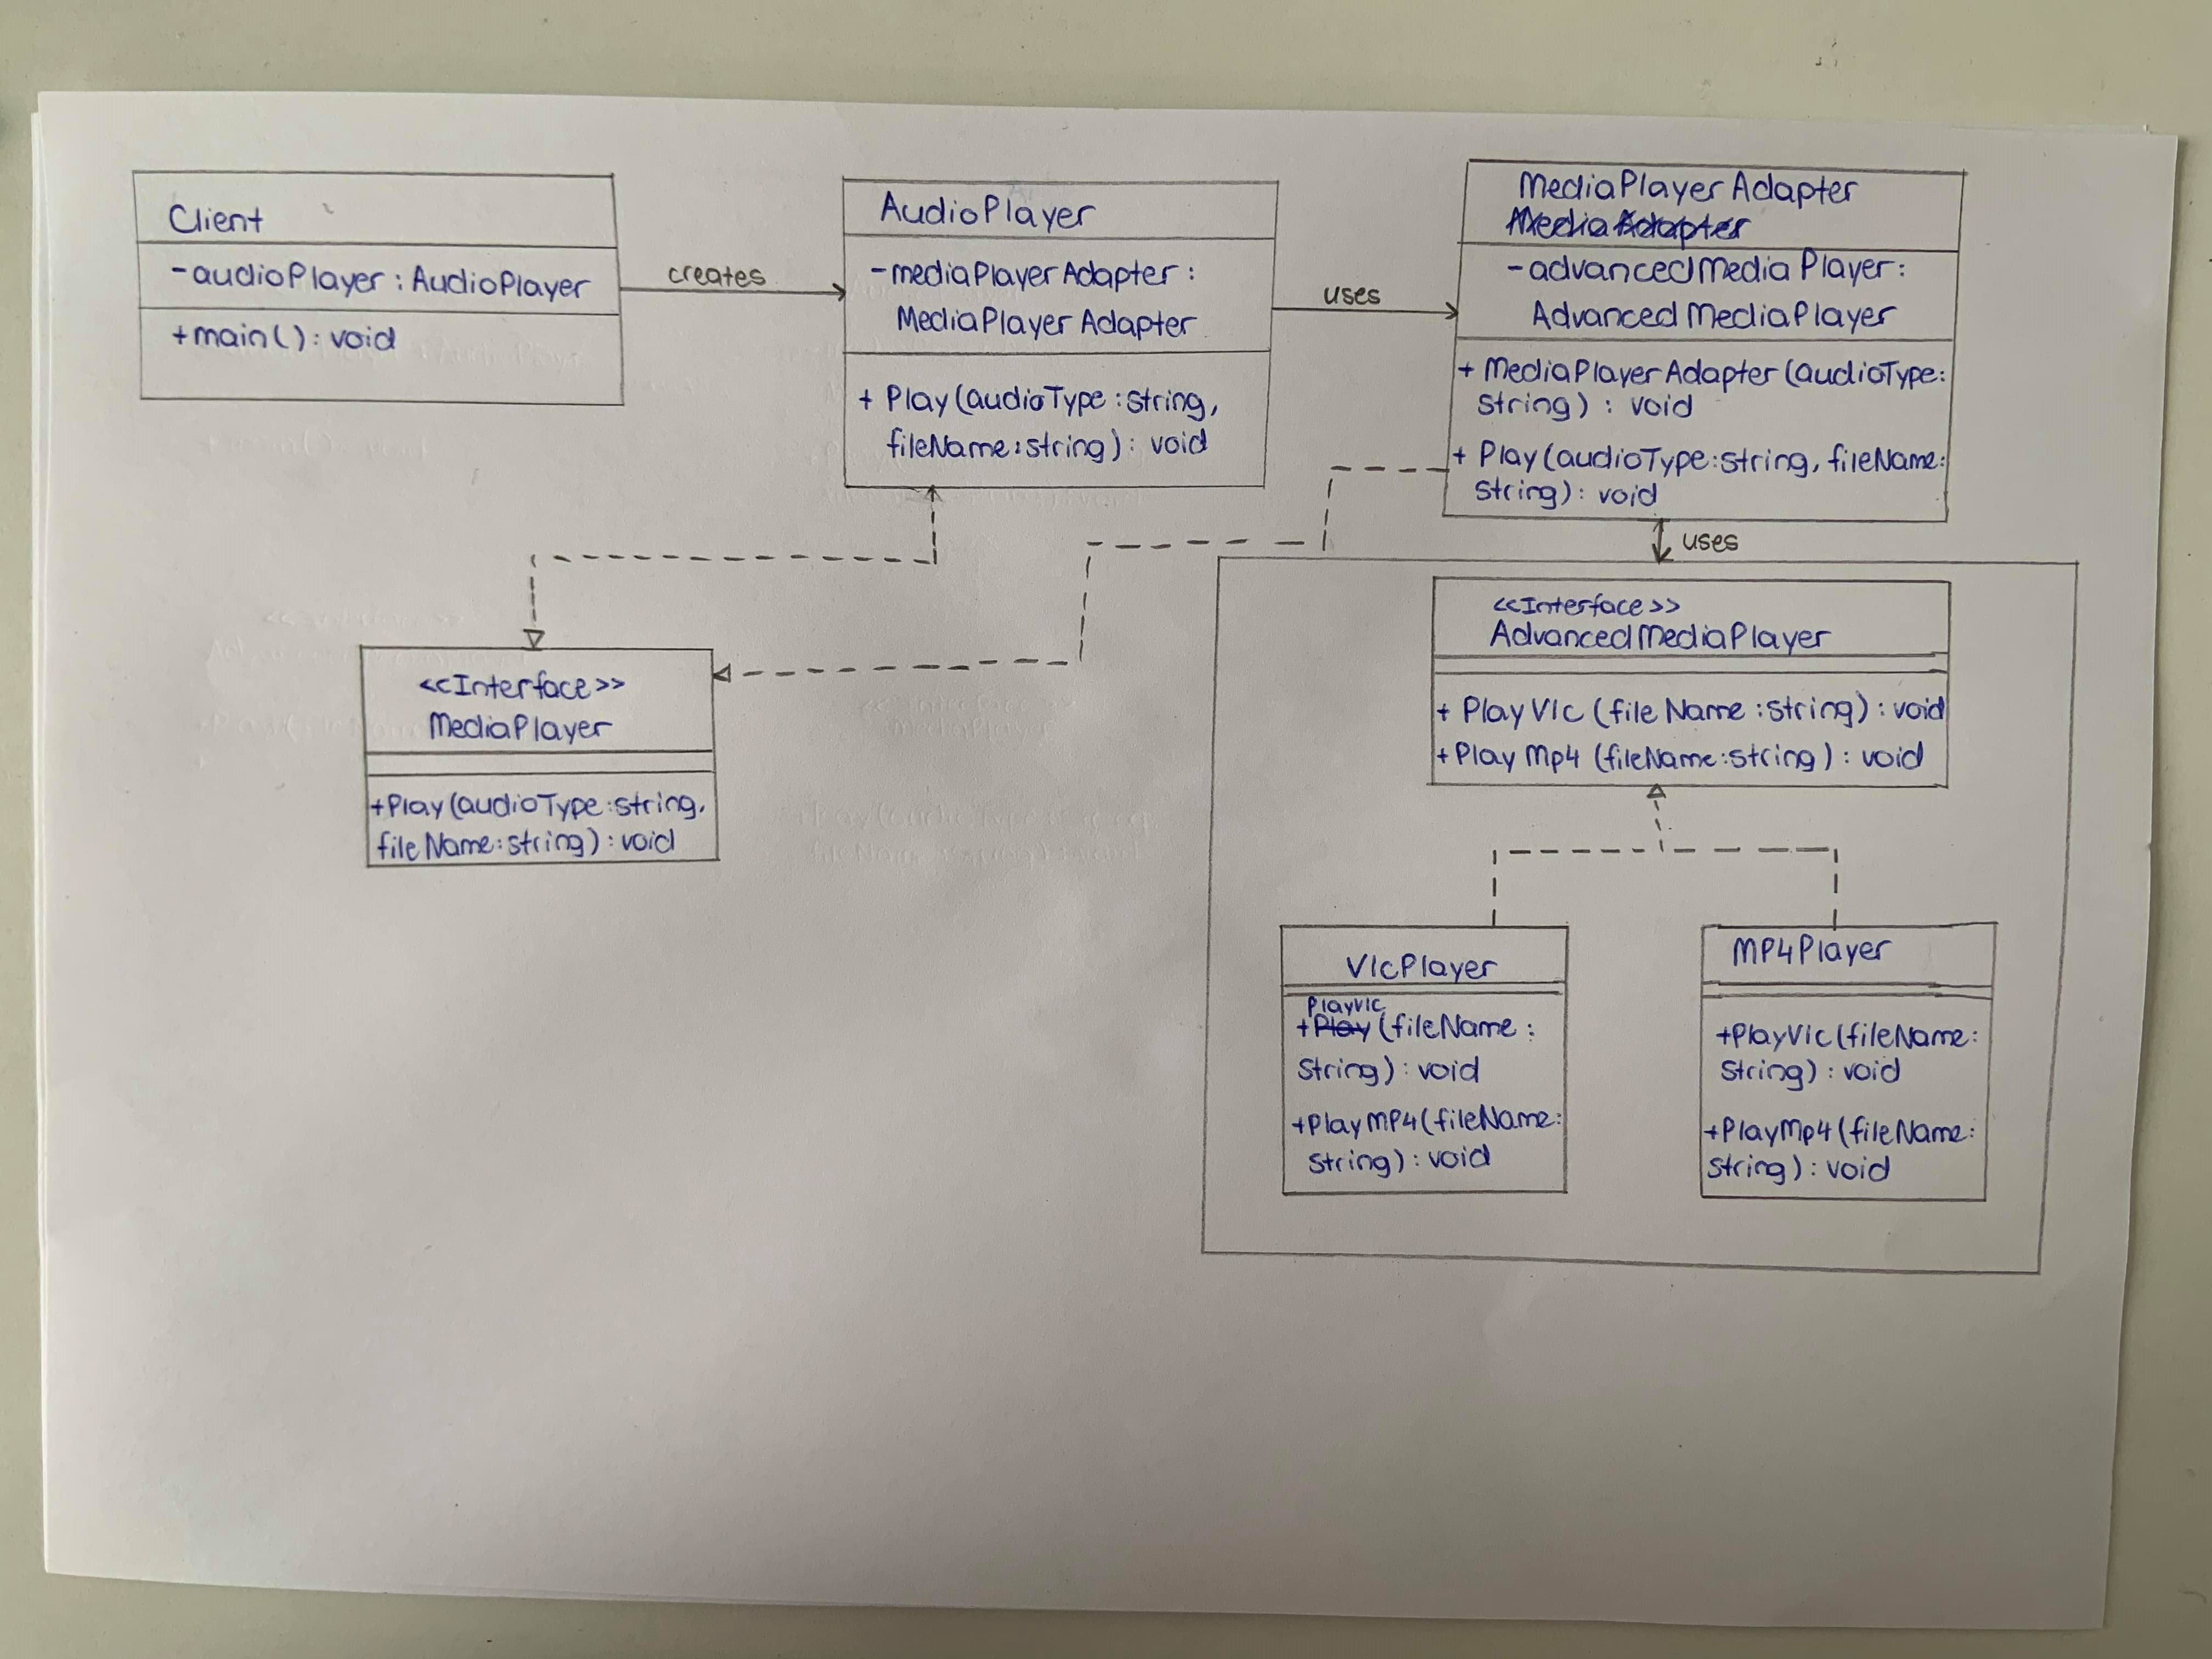 Client
-audioPlayer : AudioPlayer
+main() : void
creates
AudioPlayer
-mediaPlayerAdapter :
MediaPlayerAdapter
+ Play (audioType : string,
fileName : string) : void
uses
MediaPlayerAdapter
Media Adapter
-advancedMediaPlayer :
AdvancedMediaPlayer
+ MediaPlayerAdapter (audioType :
string) : void
+ Play (audioType : string, fileName :
string) : void
uses
<<Interface>>
MediaPlayer
+Play (audioType : string,
fileName : string) : void
<<Interface>>
AdvancedMediaPlayer
+ PlayVlc (fileName : string) : void
+ PlayMp4 (fileName : string) : void
VlcPlayer
PlayVlc
+Play (fileName :
string) : void
+PlayMP4 (fileName :
string) : void
MP4Player
+PlayVlc (fileName :
string) : void
+PlayMp4 (fileName :
string) : void